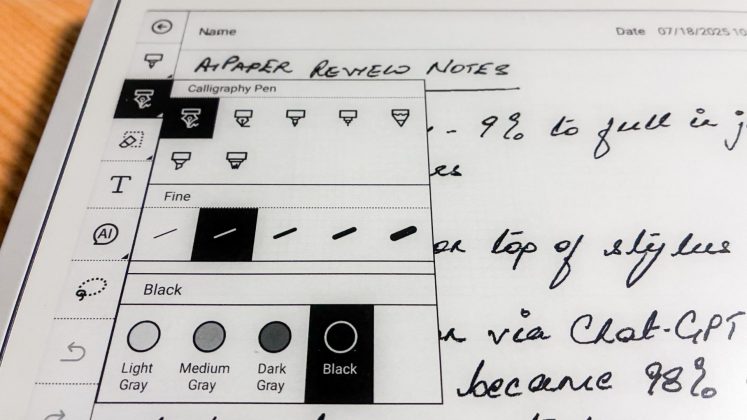 Name
Date 07/18/2025 10
AIPAPER REVIEW NOTES
Calligraphy Pen
- 9% to full in
es
Fine
T
AI
top of stylus
Black
via Chat-GPT
Light Gray
Medium Gray
Dark Gray
Black
became 98%